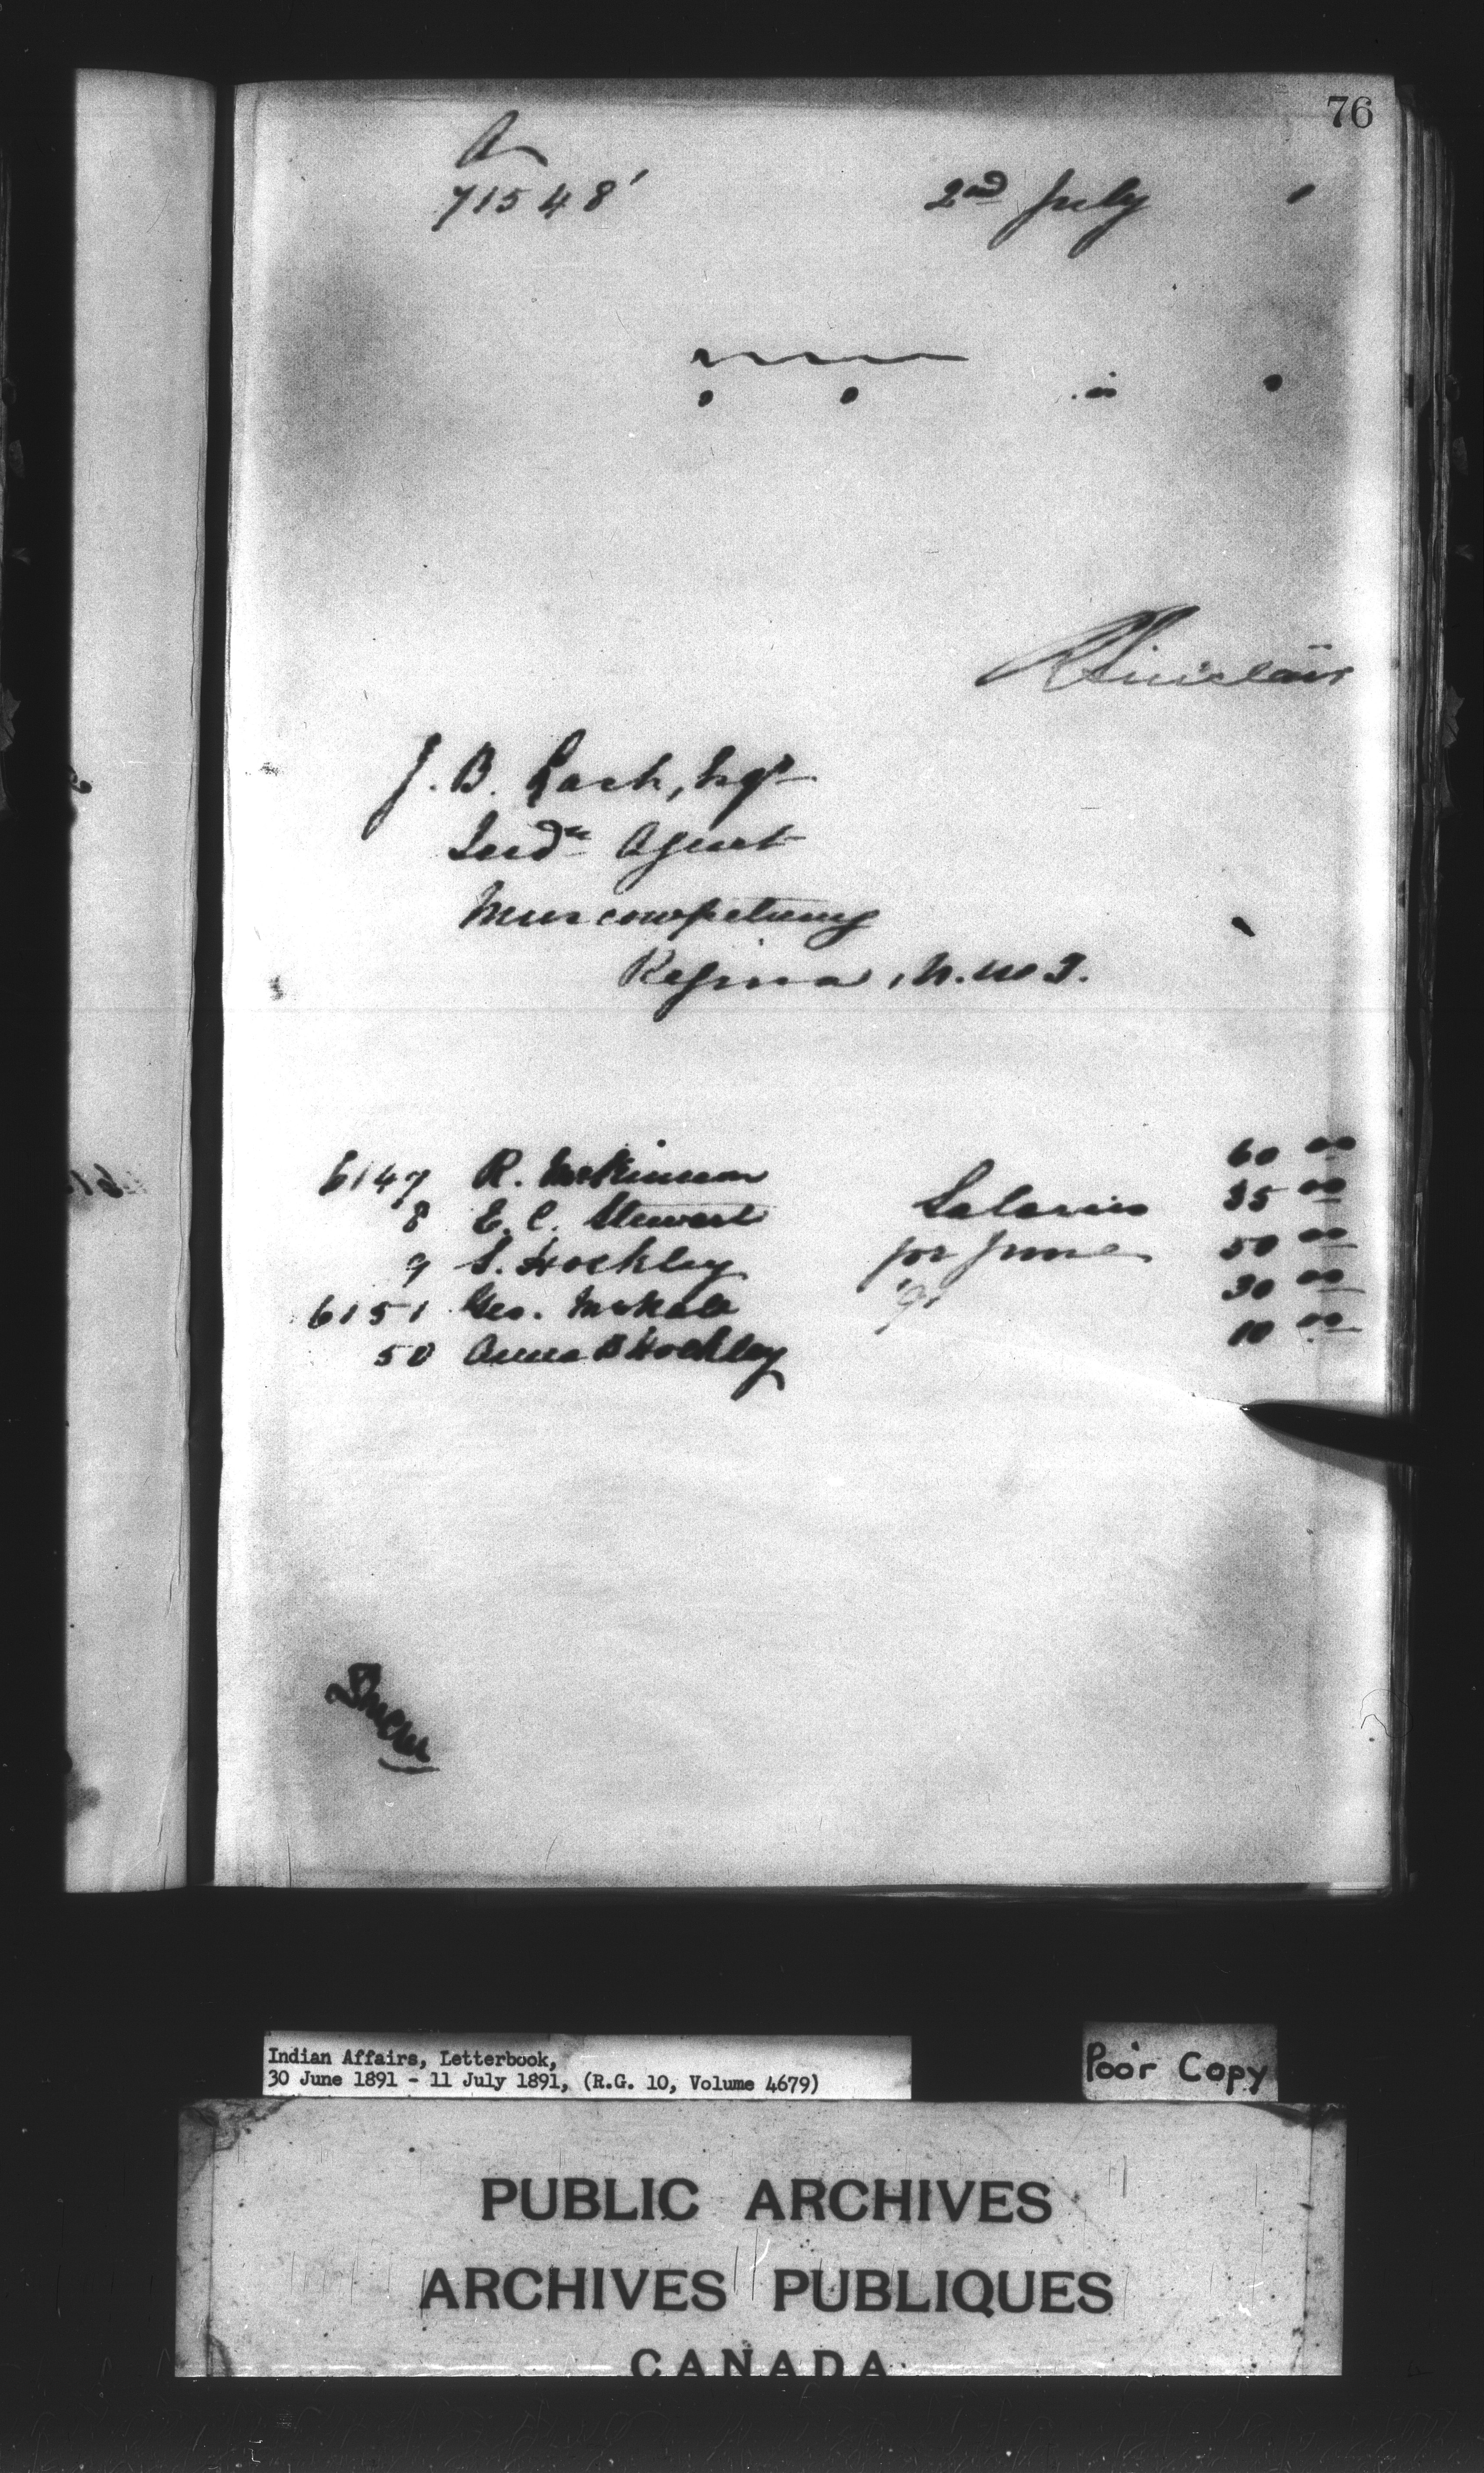 76
A
71548 2nd July 1
R Sinclair
J. B. Lash, Esqr
Indn Agent
Muscowpetung
Regina, N.W.T.
6147 R. McKinnon 60 00
8 E. C. Stewart Salaries 35 00
9 S. Hockley for June 50 00
6151 Geo. McNab '91 30 00
50 Anna B Hockley 10 00
Indian Affairs, Letterbook,
30 June 1891 - 11 July 1891, (R.G. 10, Volume 4679)
Poor Copy
PUBLIC ARCHIVES
ARCHIVES PUBLIQUES
CANADA